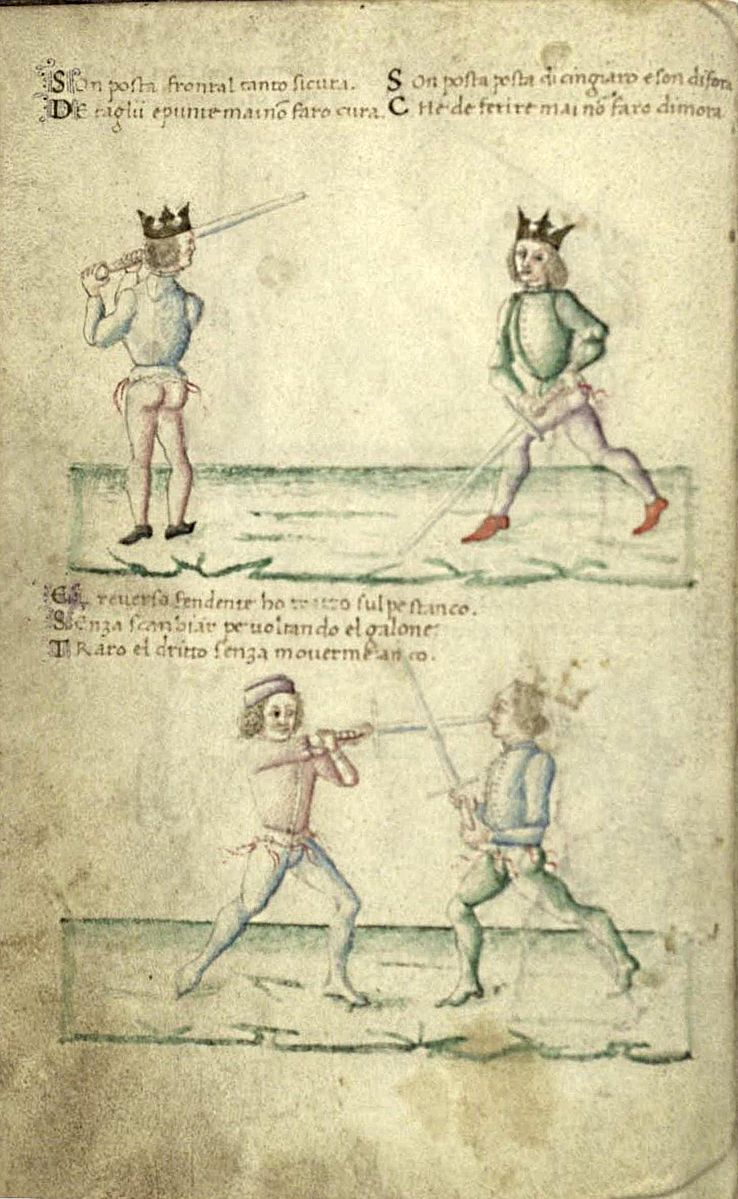 Son posta frontal tanto sicura.
DE taglii e punte mai nō faro cura.
SOn posta posta di cingiaro e son di fora
CHe de ferire mai nō faro dimora
El reverso fendente ho tratto sul pe stanco.
SEnza scanbiar pe voltando el galone
TRaro el dritto senza moverme an co.